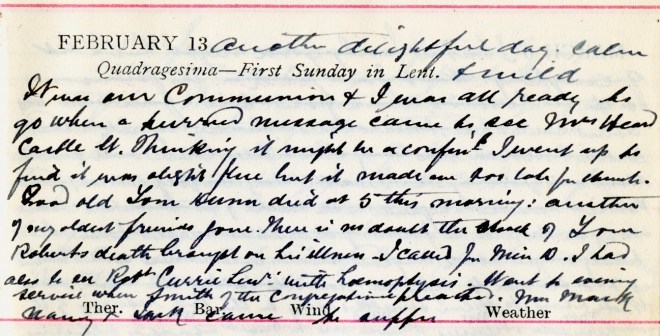 FEBRUARY 13 another delightful day. Calm
Quadragesima—First Sunday in Lent. & mild
It was our Communion & I was all ready to
go when a hurried message came to see Mrs Heard
Castle St. Thinking it might be a confint I went up to
find it was slight flue but it made me too late for church.
Good old Tom Dunn died at 5 this morning: another
of my oldest friends gone. There is no doubt the shock of Tom
Roberts death brought on his illness. I called for Miss D. I had
also to see Robt Currie Lewr with haemophysis. Went to evening
service when Smith of the Congregation preached. Wm Mack
Nancy & Jack came to supper
Ther. Bar. Wind Weather